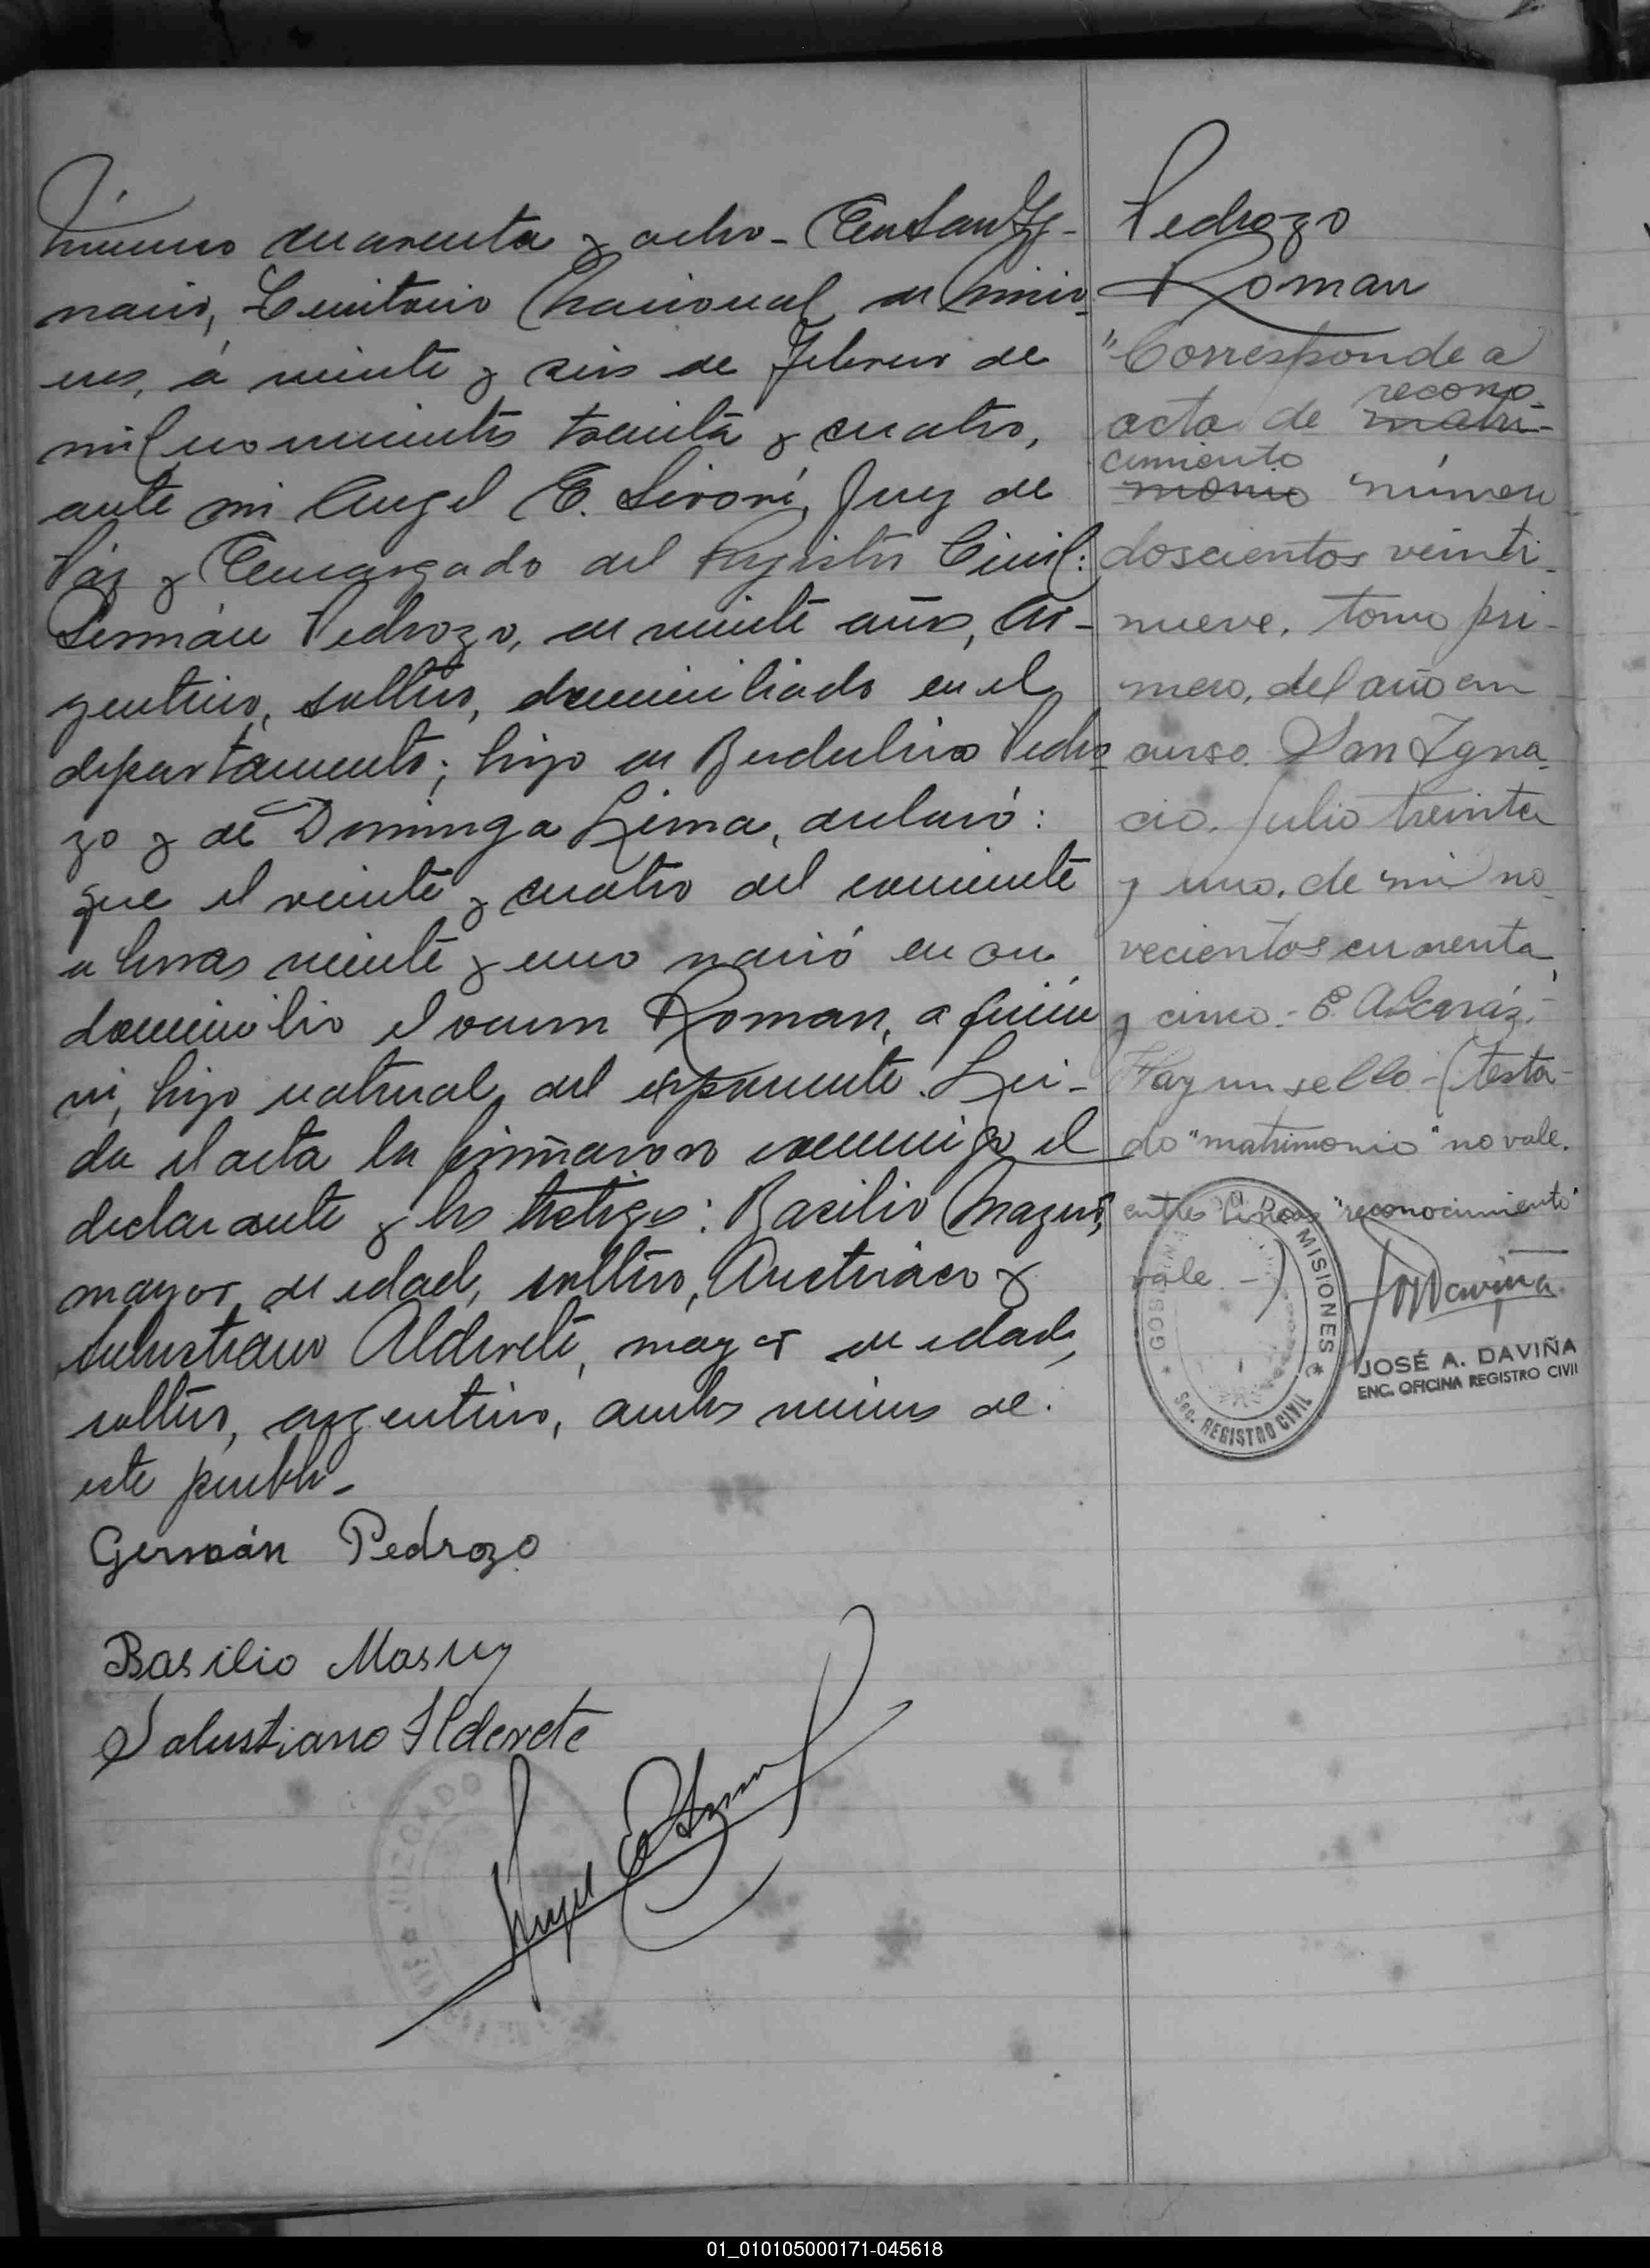 Número cuarenta y ocho - En San Ig-
nacio, Territorio Nacional de Misio-
nes, á veinte y seis de Febrero de
mil novecientos treinta y cuatro,
ante mi Angel E. Sivori, Juez de
Paz y Encargado del Registro Civil:
Germán Pedrozo, de veinte años, Ar-
gentino, soltero, domiciliado en el
departamento; hijo de Pedro
zo y de Dominga Lima, declaró:
que el veinte y cuatro del corriente
a horas veinte y uno nació en su
domicilio el varon Roman, a quien
vi, hijo natural del exponente. Lei-
da el acta la firmaron conmigo el
declarante y los testigos: Basilio
mayor de edad, soltero, Austriaco y
Salustiano Alderete, mayor de edad,
soltero, argentino, ambos vecinos de
este pueblo-
Germán Pedrozo
Basilio
Salustiano Alderete
JUZGADO
Angel E Sivori
Pedrozo
Roman
"Corresponde a
recono
acta de matri-
cimiento
monio número
doscientos veinti-
nueve, tomo pri-
mero, del año en
curso. San Igna-
cio, Julio treinta
y uno, de mil no-
vecientos cuarenta
y cinco.- E. Alcaráz.-
Hay un sello-(testa-
do "matrimonio" no vale.
entre líneas "reconocimiento"
vale -)
MISIONES
SEC. REGISTRO CIVIL
JOSÉ A. DAVIÑA
ENC. OFICINA REGISTRO CIVIL
01_010105000171-045618